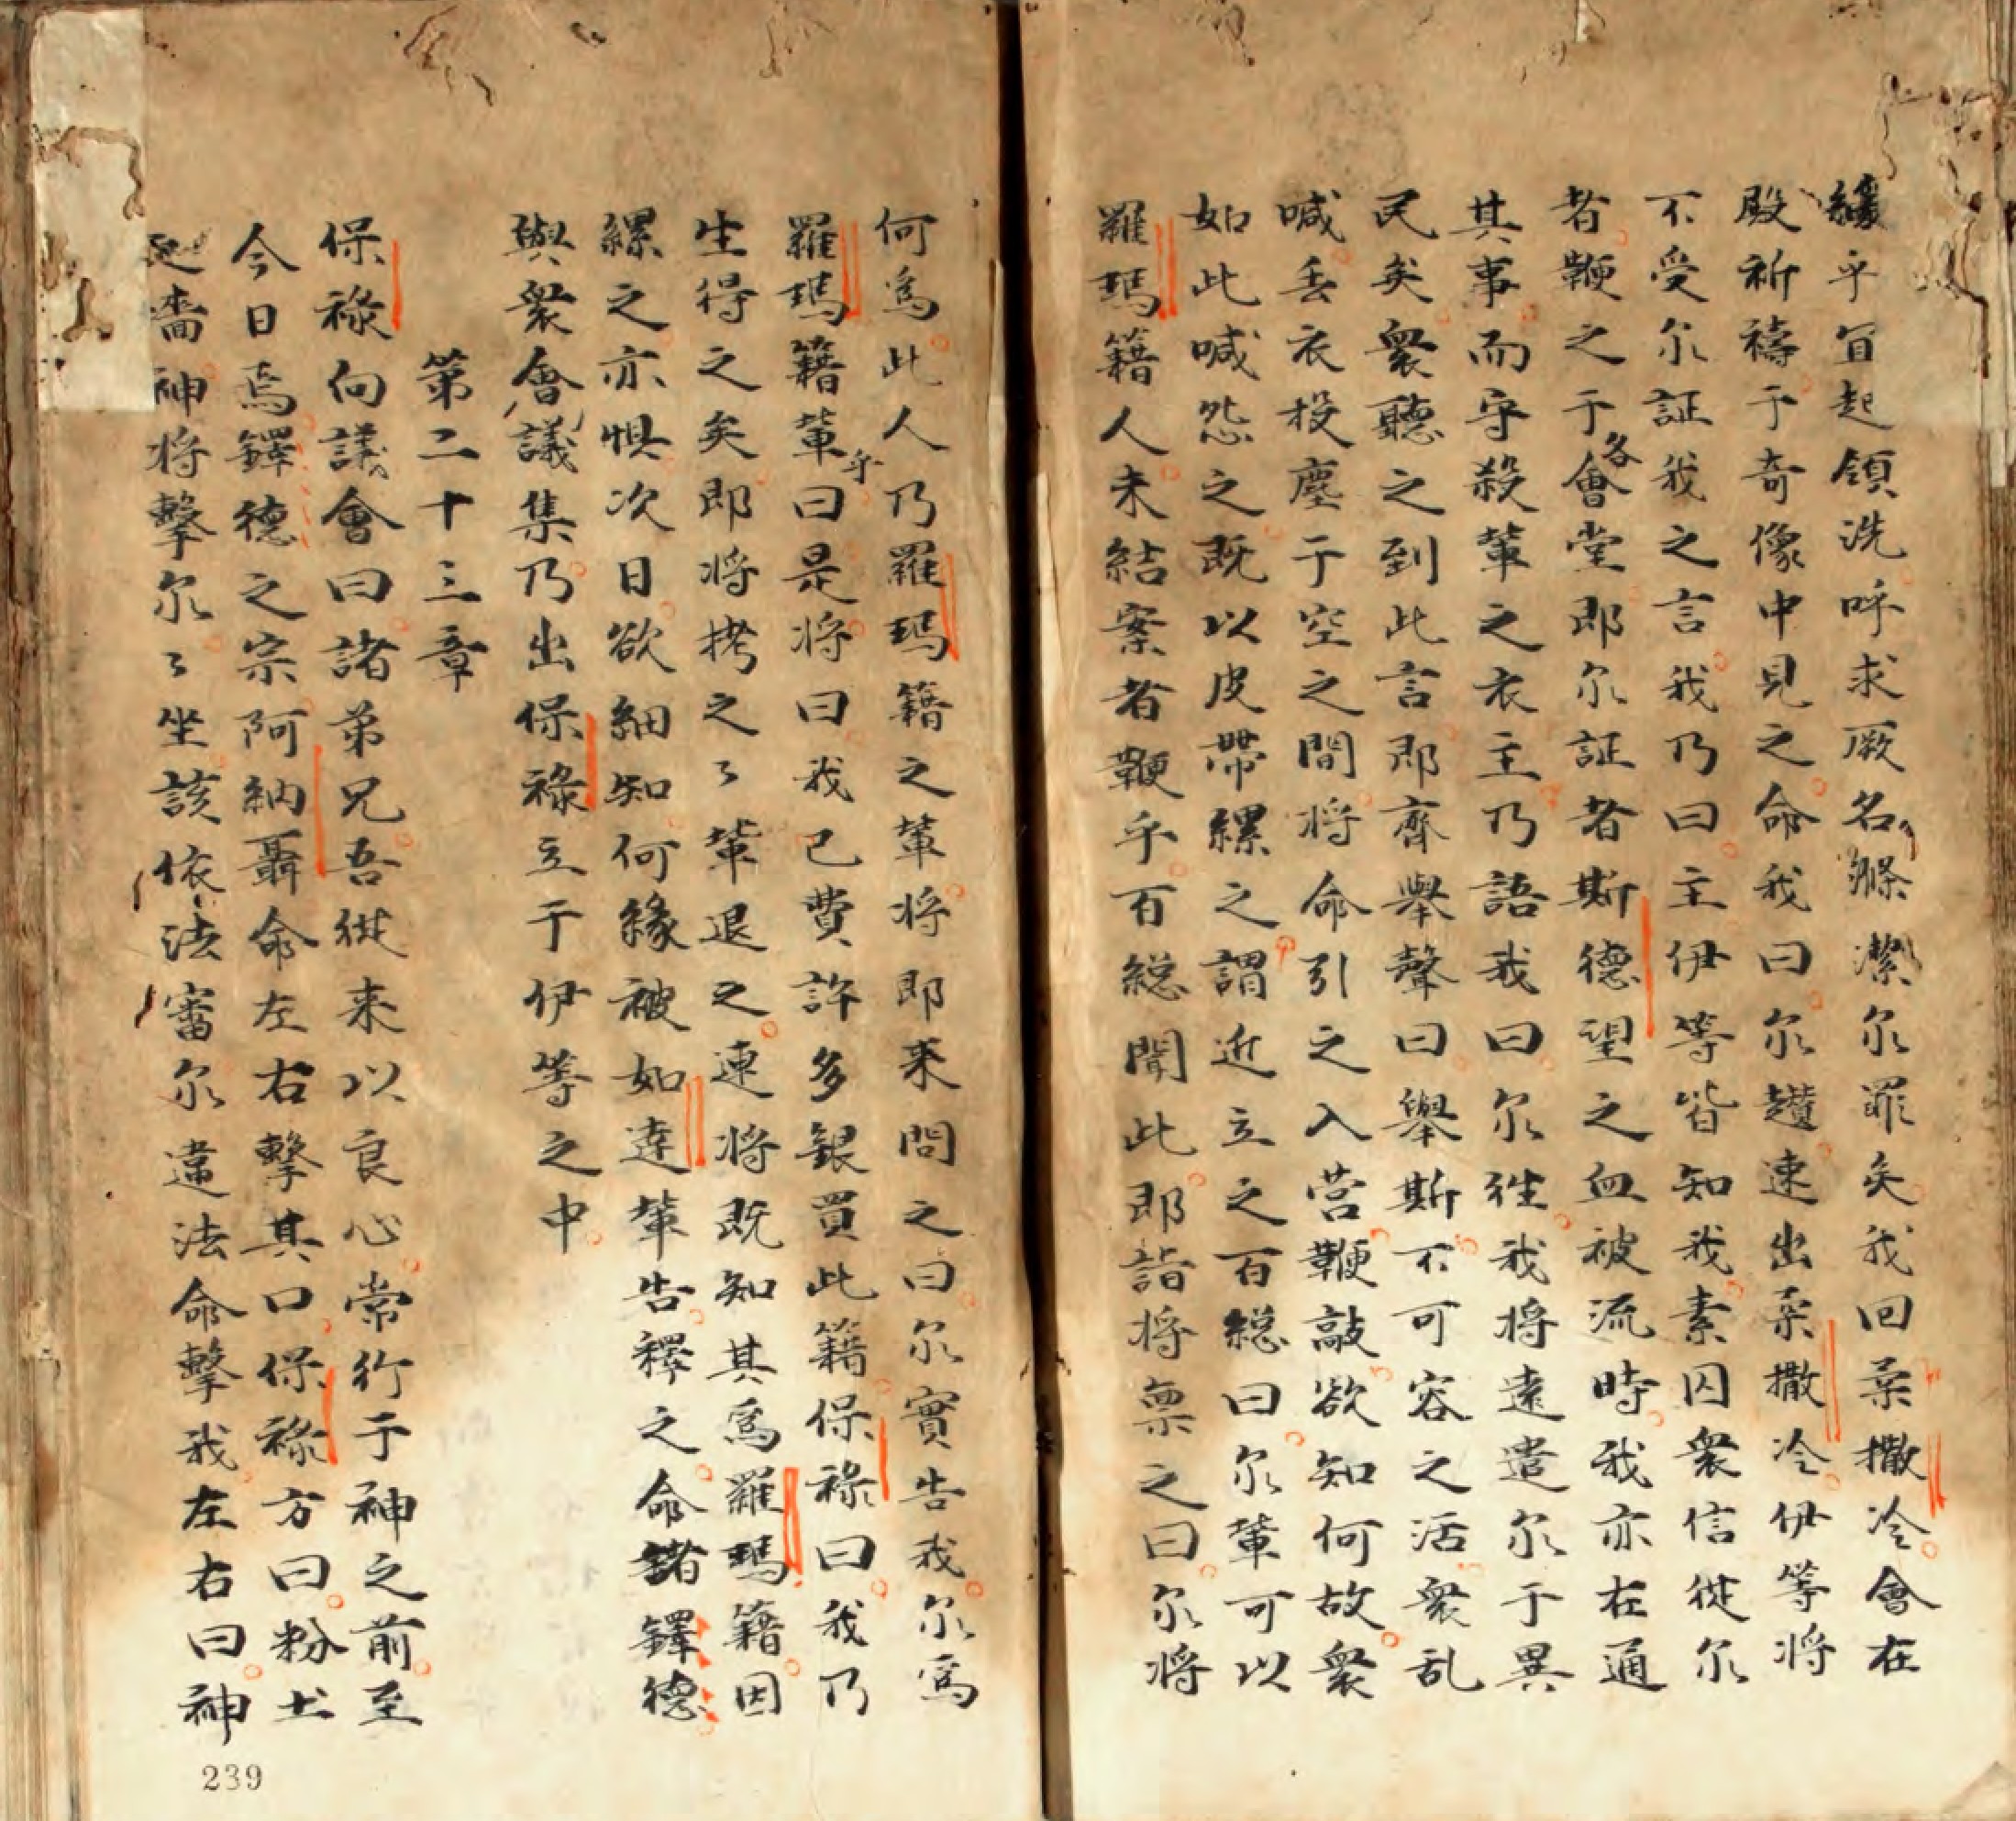 緩乎宜起領洗呼求厥名滌潔尔罪矣我回柔撒冷會在
殿祈禱于奇像中見之命我曰尔趲速出柔撒冷伊等將
不受尔証我之言我乃曰主伊等皆知我素囚衆信從尔
者鞭之于各會堂即尔証者斯德望之血被流時我亦在通
其事而守殺軰之衣主乃語我曰尔徃我將遠遣尔于異
民矣衆聽之到此言即齊舉聲曰舉斯不可容之活衆乱
喊丢衣投塵于空之間將命引之入营鞭敲欲知何故衆
如此喊怨之既以皮帶縲之謂近立之百総曰尔軰可以
羅瑪籍人未結案者鞭乎百総聞此即詣將禀之曰尔將
何爲此人乃羅瑪籍之軰將即来問之曰尔實告我尔爲
羅瑪籍軰乎曰是將曰我已費許多銀買此籍保祿曰我乃
生得之矣即將拷之〻軰退之連將既知其爲羅瑪籍因
縲之亦惧次日欲細知何緣被如達軰告釋之命諸鐸德
與衆會議集乃出保祿立于伊等之中
第二十三章
保祿向議會曰諸弟兄吾從来以良心常行于神之前至
今日焉鐸德之宗阿納聶命左右擊其口保祿方曰粉土
墙神將擊尔〻坐該依法審尔違法命擊我左右曰神
239